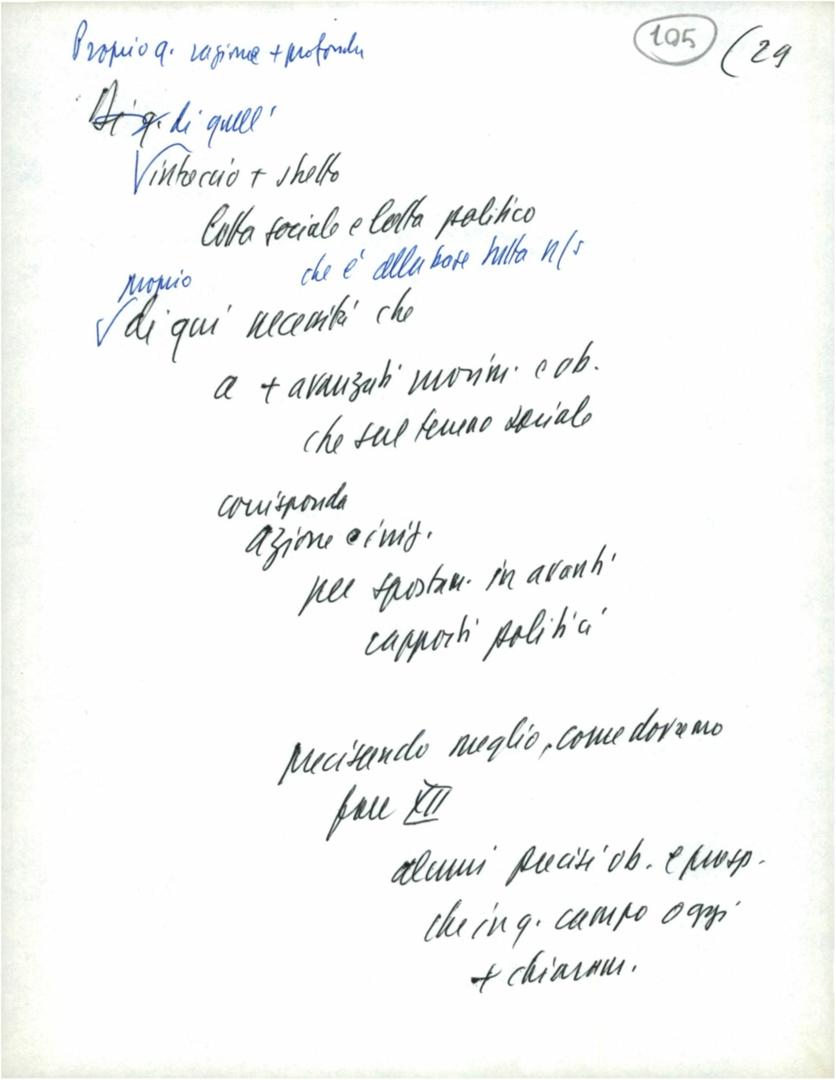 105 (29
Proprio q. ragione + profonda
Di q. di quell'
intreccio + stretto
lotta sociale e lotta politica
che è alla base tutta n/s
proprio
di qui necessità che
a + avanzati movim. e ob.
che sul terreno sociale
corrisponda
azione e iniz.
per spostam. in avanti
rapporti politici
precisando meglio, come dovremo
fare XII
alcuni precisi ob. e prosp.
che in q. campo oggi
+ chiaram.